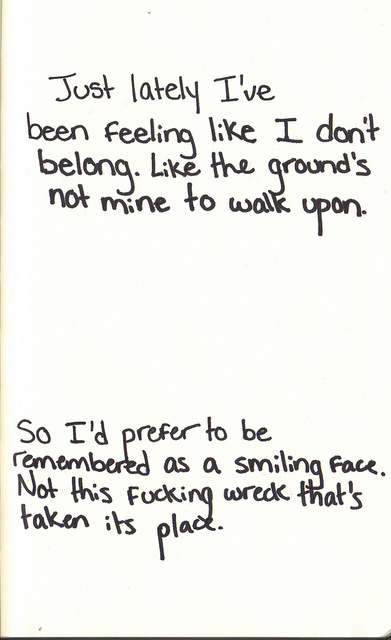 Just lately I've
been feeling like I don't
belong. Like the ground's
not mine to walk upon.
So I'd prefer to be
remembered as a smiling face.
Not this fucking wreck that's
taken its place.